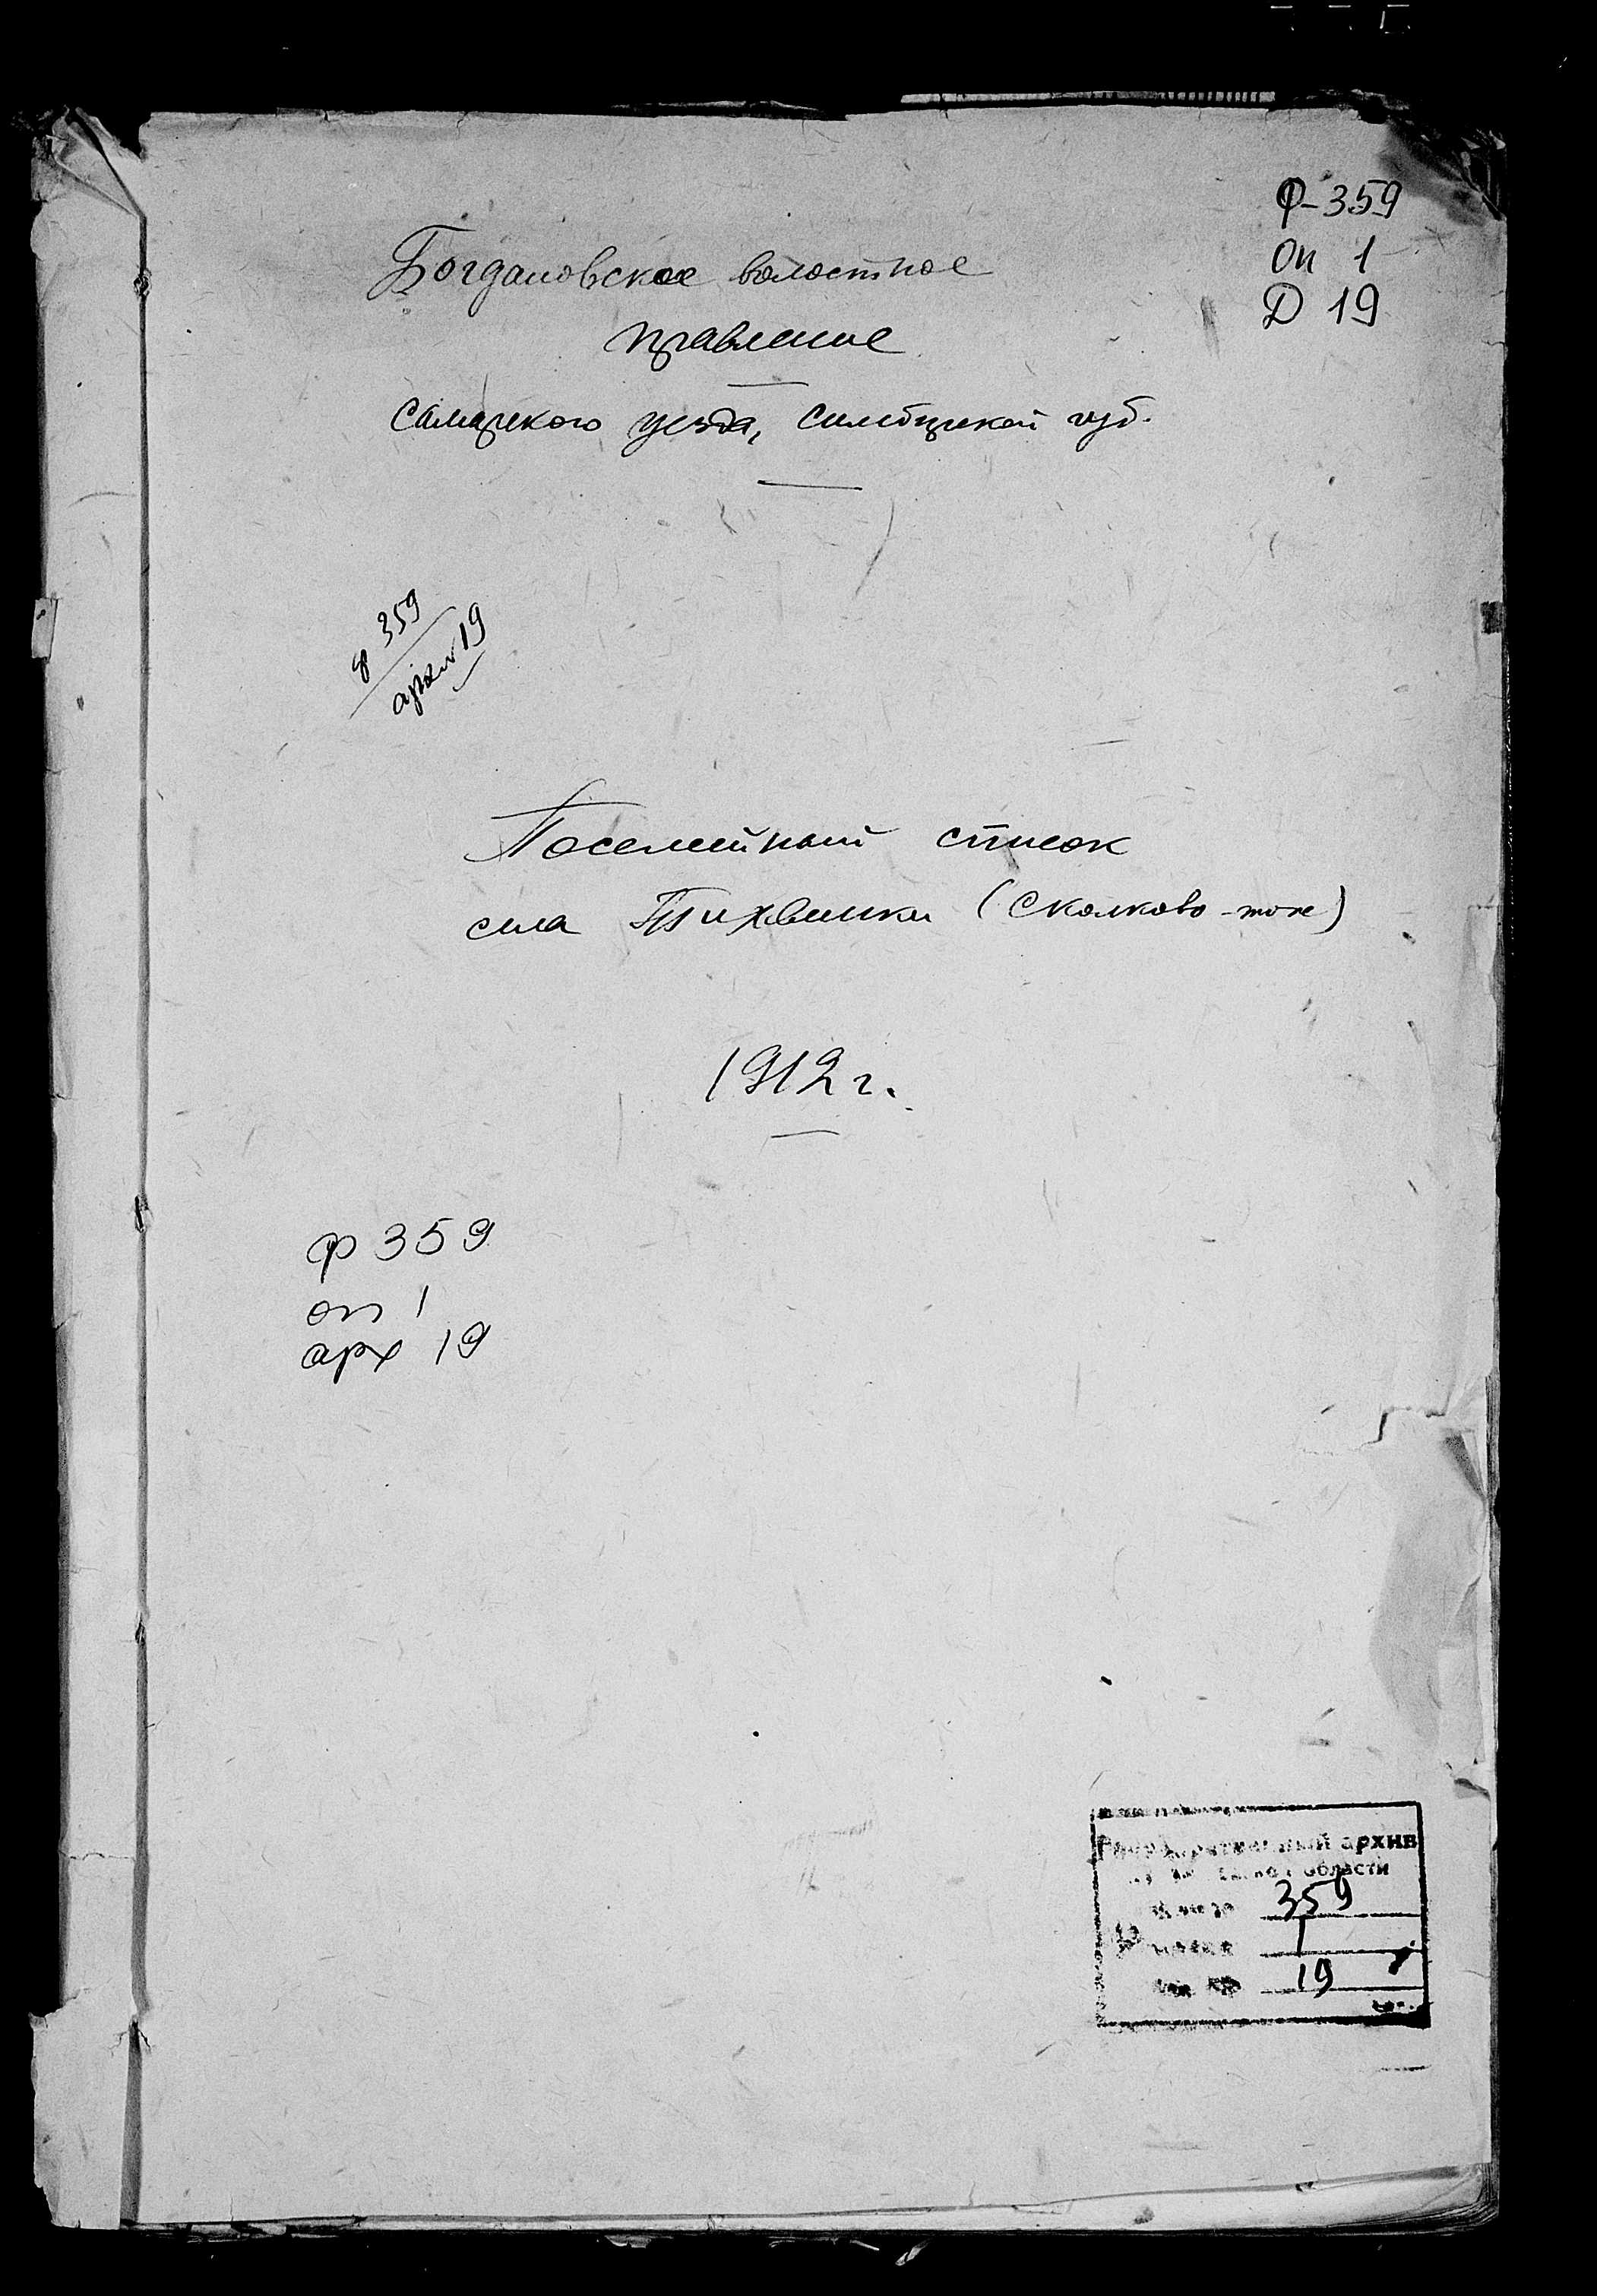 Ф-359
Оп 1
Д 19
Богдановское волостное
правление
Самарского уезда, Симбирской губ.
ф 359
арх 19
Посемейный список
села Тихвинки (Сколково-тож)
1912 г.
ф 359
оп 1
арх 19
Государственный архив
области
359
1
19